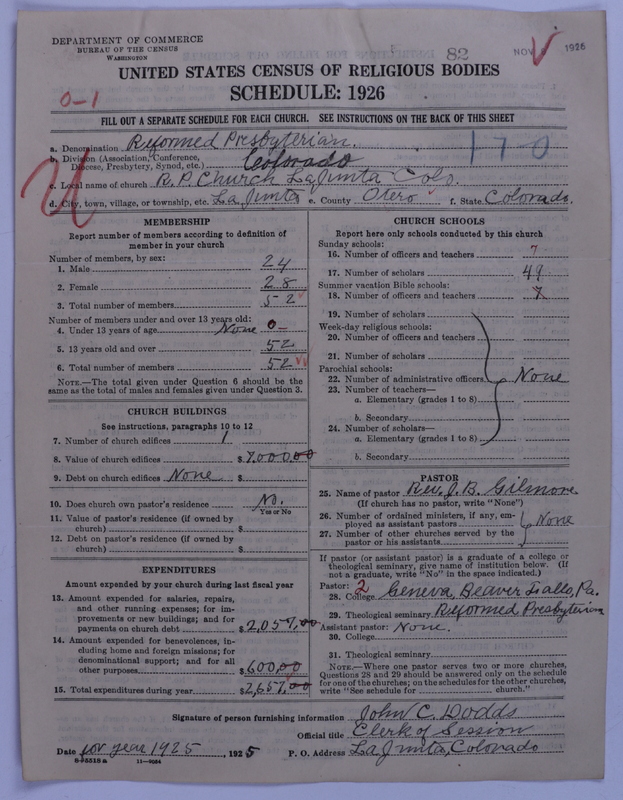 DEPARTMENT OF COMMERCE
BUREAU OF THE CENSUS
WASHINGTON
82
NOV 1926
V
UNITED STATES CENSUS OF RELIGIOUS BODIES
0-1
SCHEDULE: 1926
FILL OUT A SEPARATE SCHEDULE FOR EACH CHURCH. SEE INSTRUCTIONS ON THE BACK OF THIS SHEET
a. Denomination Reformed Presbyterian.
170
b. Division (Association, Conference, Diocese, Presbytery, Synod, etc.) Colorado
c. Local name of church R. P. Church La Junta Colo.
d. City, town, village, or township, etc. La Junta e. County Otero f. State Colorado.
MEMBERSHIP
Report number of members according to definition of
member in your church
Number of members, by sex:
1. Male 24
2. Female 28
3. Total number of members 52
Number of members under and over 13 years old:
4. Under 13 years of age None 0-
5. 13 years old and over 52
6. Total number of members 52
NOTE.—The total given under Question 6 should be
same as the total of males and females given under Question 3.
CHURCH BUILDINGS
See instructions, paragraphs 10 to 12
7. Number of church edifices 1
8. Value of church edifices $7,000.00
9. Debt on church edifices None $
10. Does church own pastor's residence No.
Yes or No
11. Value of pastor's residence (if owned by
church) $
12. Debt on pastor's residence (if owned by
church) $
EXPENDITURES
Amount expended by your church during last fiscal year
13. Amount expended for salaries, repairs,
and other running expenses; for im-
provements or new buildings; and for
payments on church debt $2,057.00
14. Amount expended for benevolences, in-
cluding home and foreign missions; for
denominational support; and for all
other purposes $600.00
15. Total expenditures during year $2,657.00
CHURCH SCHOOLS
Report here only schools conducted by this church
Sunday schools:
16. Number of officers and teachers 7
17. Number of scholars 49
Summer vacation Bible schools:
18. Number of officers and teachers 7
19. Number of scholars
Week-day religious schools:
20. Number of officers and teachers
21. Number of scholars
Parochial schools:
22. Number of administrative officers None
23. Number of teachers—
a. Elementary (grades 1 to 8)
b. Secondary
24. Number of scholars—
a. Elementary (grades 1 to 8)
b. Secondary
PASTOR
25. Name of pastor Rev. J. B. Gilmore.
(If church has no pastor, write "None")
26. Number of ordained ministers, if any, em-
ployed as assistant pastors None
27. Number of other churches served by the
pastor or his assistants
If pastor (or assistant pastor) is a graduate of a college or
theological seminary, give name of institution below. (If
not a graduate, write "No" in the space indicated.)
Pastor: 2
28. College Geneva, Beaver Falls, Pa.
29. Theological seminary Reformed Presbyterian
Assistant pastor: None.
30. College
31. Theological seminary
NOTE.—Where one pastor serves two or more churches,
Questions 28 and 29 should be answered only on the schedule
for one of the churches; on the schedules for the other churches,
write "See schedule for church."
Signature of person furnishing information John C. Dodds
Official title Clerk of Session
Date for year 1925, 1925 P. O. Address La Junta, Colorado
11—9064